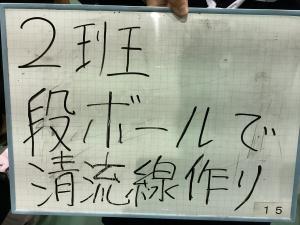 2班
段ボールで
清流線作り
15